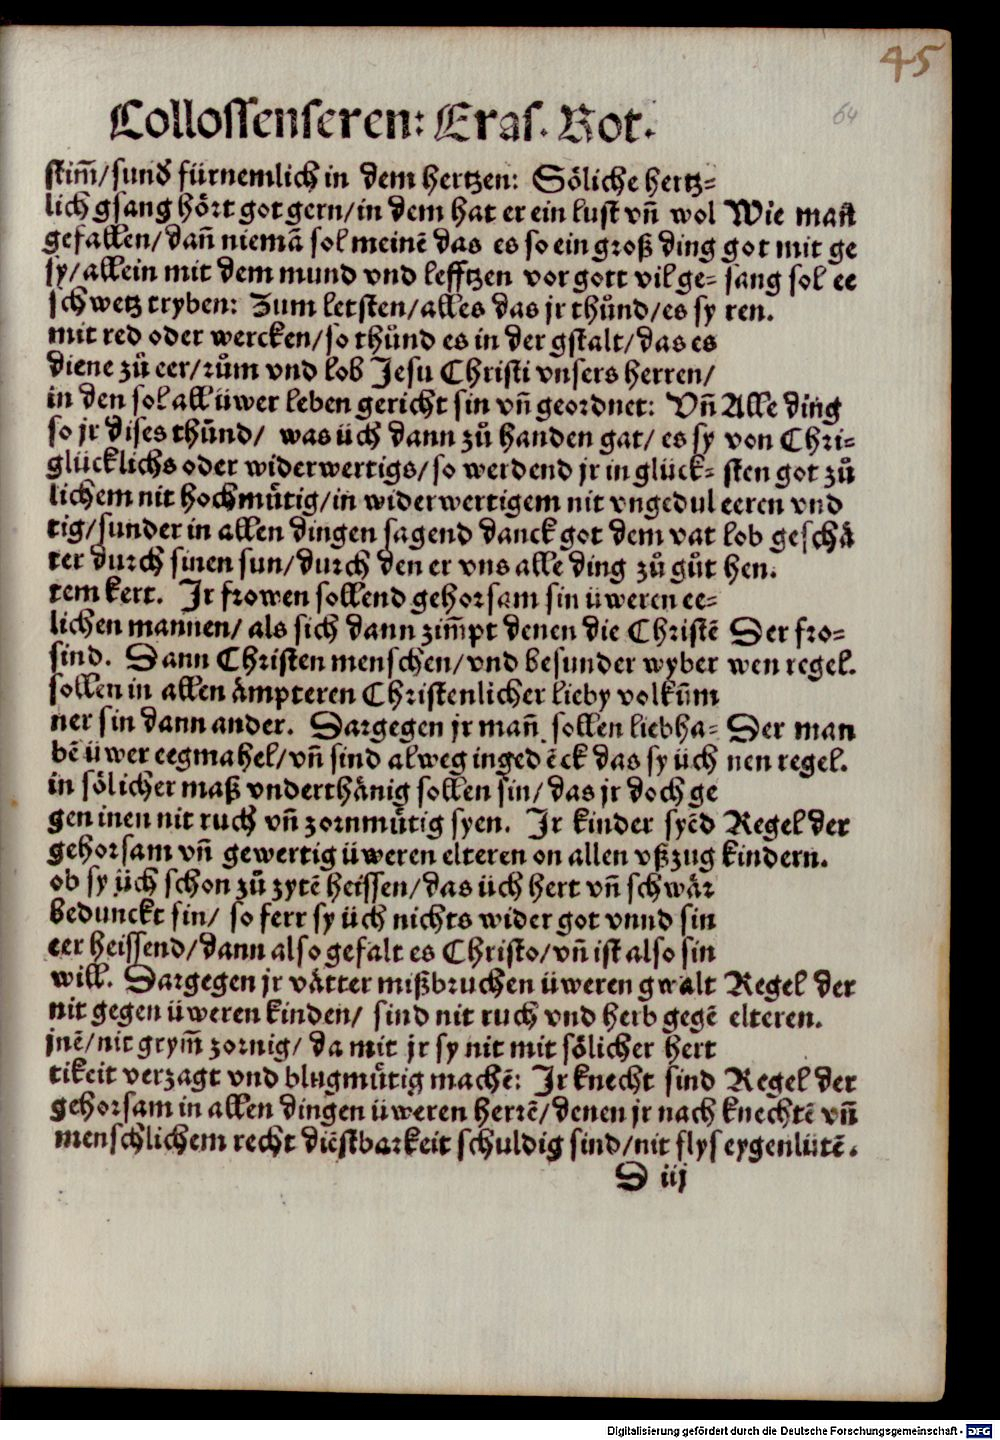 45
64
Collossenseren: Eras. Rot.
stim̃/sund fürnemlich in dem hertzen: Söliche hertz=
lich gsang hört got gern/in dem hat er ein lust vñ wol
gefallen/dañ niemā sol meinē das es so ein groß ding
sy/allein mit dem mund vnd lefftzen vor gott vil ge=
schwetz tryben: Zum letsten/alles das jr thůnd/es sy
mit red oder wercken/so thůnd es in der gstalt/das es
diene zů eer/rům vnd lob Jesu Christi vnsers herren/
in den sol all üwer leben gericht sin vñ geordnet: Vñ
so jr dises thůnd/ was üch dann zů handen gat/ es sy
glücklichs oder widerwertigs/so werdend jr in glück=
lichem nit hochmůtig/in widerwertigem nit vngedul
tig/sunder in allen dingen sagend danck got dem vat
ter durch sinen sun/durch den er vns alle ding zů gůt
tem kert. Jr frowen sollend gehorsam sin üweren ee=
lichen mannen/ als sich dann zim̃pt denen die Christē
sind. Dann Christen menschen/vnd besunder wyber
sollen in allen ämpteren Christenlicher lieby volkũm
ner sin dann ander. Dargegen jr mañ sollen liebha=
bē üwer eegmahel/vñ sind alweg ingedēck das sy üch
in sölicher maß vnderthänig sollen sin/das jr doch ge
gen inen nit ruch vñ zornmůtig syen. Jr kinder syēd
gehorsam vñ gewertig üweren elteren on allen vßzug
ob sy üch schon zů zytē heissen/das üch hert vñ schwär
bedunckt sin/ so ferr sy üch nichts wider got vnnd sin
eer heissend/dann also gefalt es Christo/vñ ist also sin
will. Dargegen jr vätter mißbruchen üweren gwalt
nit gegen üweren kinden/ sind nit ruch vnd herb gegē
jnē/nit grym̃ zornig/ da mit jr sy nit mit sölicher hert
tikeit verzagt vnd blugmůtig machē: Jr knecht sind
gehorsam in allen dingen üweren herrē/denen jr nach
menschlichem recht diēstbarkeit schuldig sind/nit flys
D iij
Wie man
got mit ge
sang sol ee
ren.
Alle ding
von Chri=
sten got zů
eeren vnd
lob geschä
hen.
Der fro=
wen regel.
Der man
nen regel.
Regel der
kindern.
Regel der
elteren.
Regel der
knechtē vñ
eygenlütē.
Digitalisierung gefördert durch die Deutsche Forschungsgemeinschaft - DFG